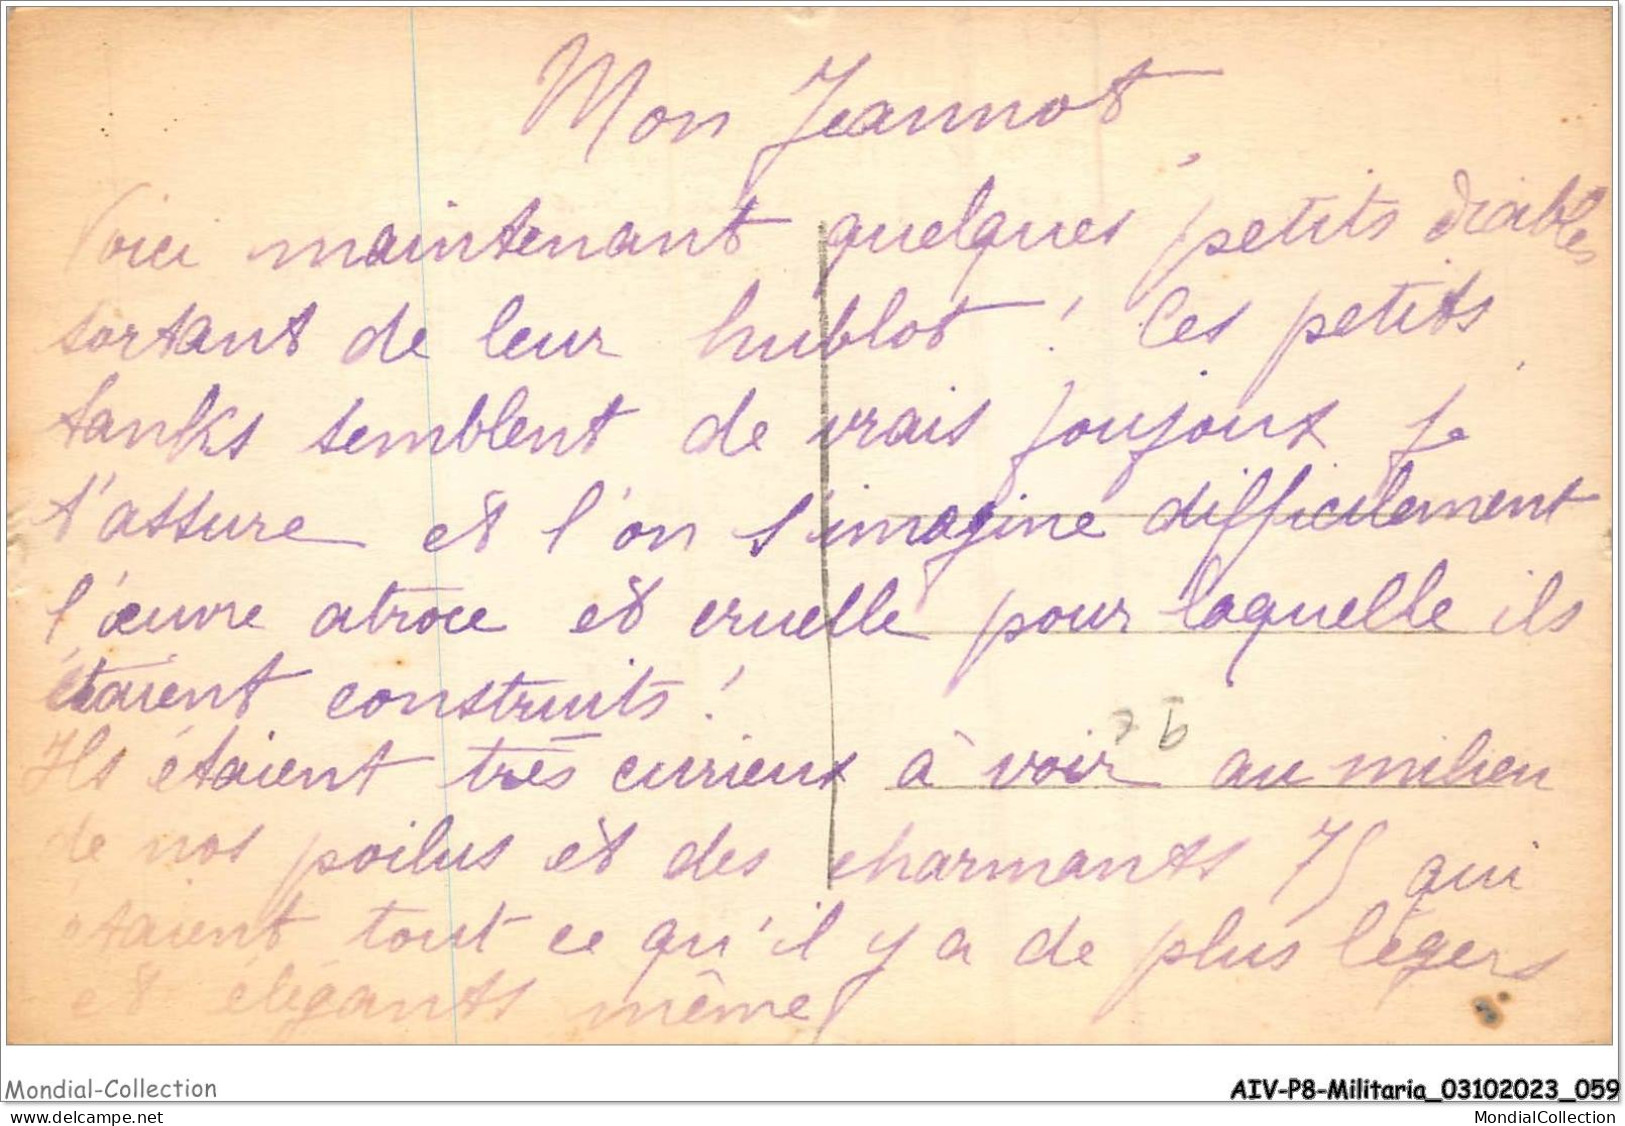 Mon Jeannot
Voici maintenant quelques petits diables
sortant de leur hublot ! Ces petits
tanks semblent de vrais joujoux je
t'assure et l'on s'imagine difficilement
l'œuvre atroce et cruelle pour laquelle ils
étaient construits !
Ils étaient très curieux à voir au milieu
de nos poilus et des charmants 75 qui
étaient tout ce qu'il y a de plus légers
et élégants même
Mondial-Collection
AIV-P8-Militaria_03102023_059
www.delcampe.net
MondialCollection